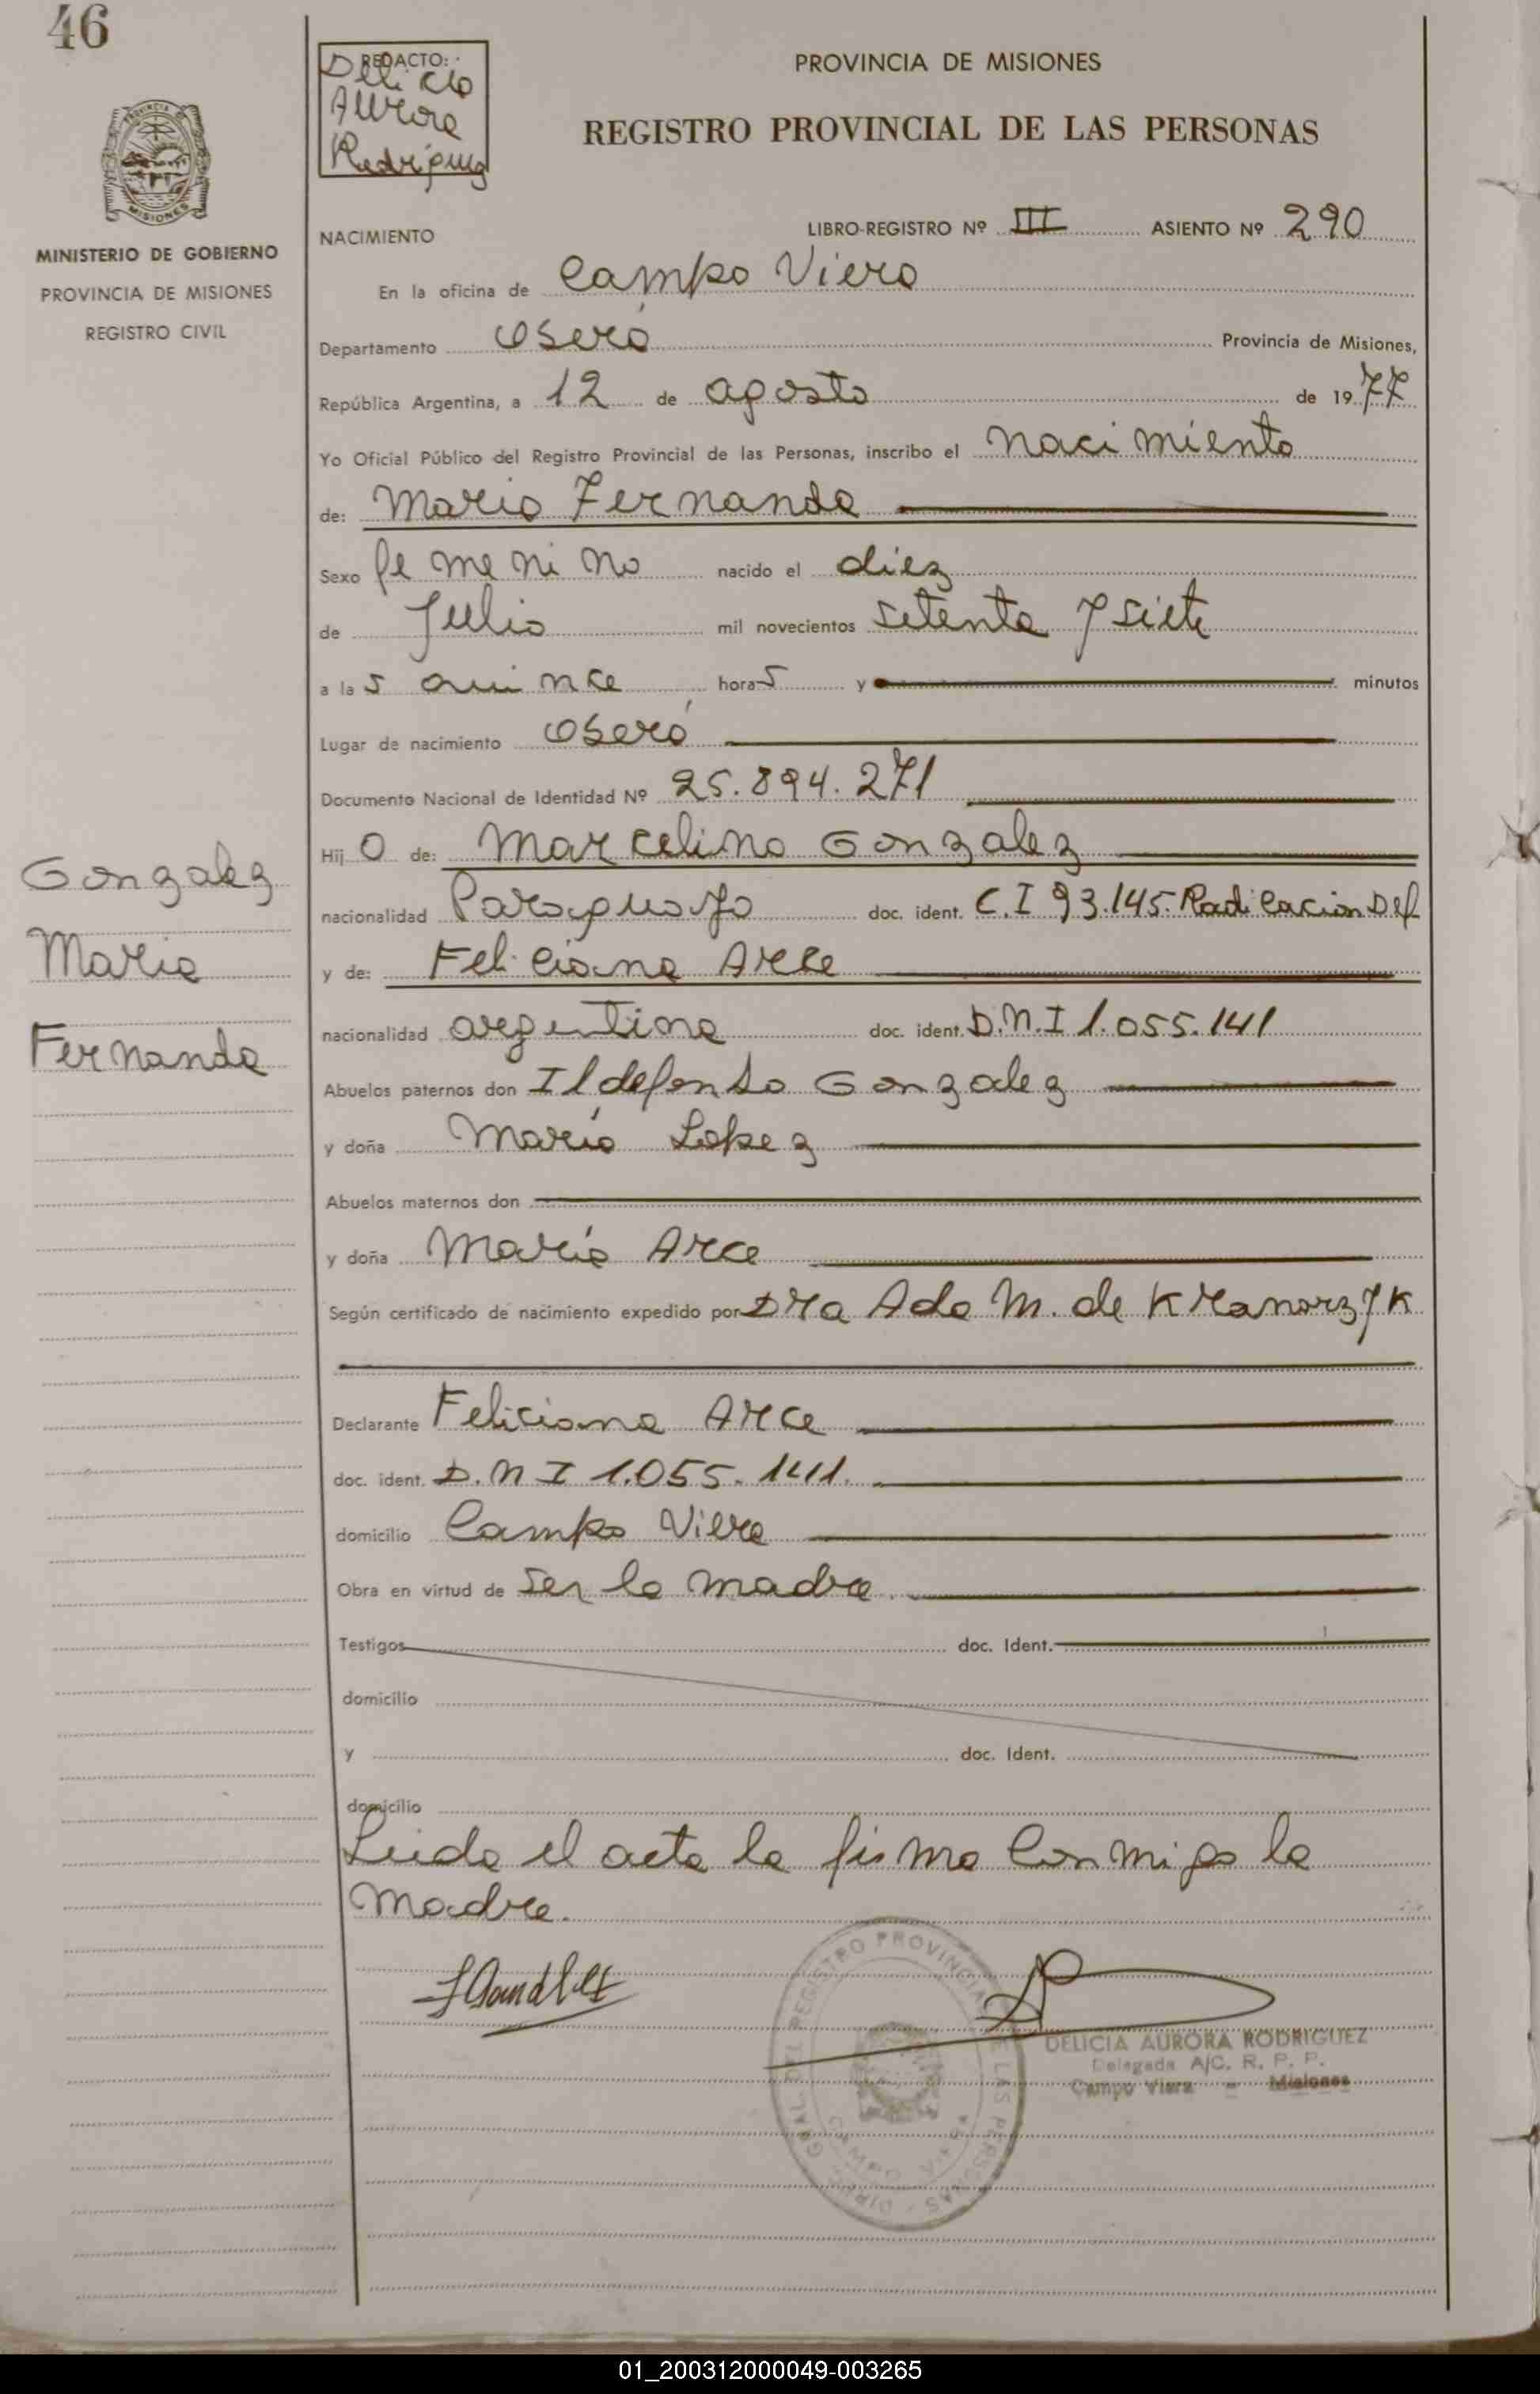 46
REDACTO:
Delicia
Aurora
Rodriguez
PROVINCIA DE MISIONES
REGISTRO PROVINCIAL DE LAS PERSONAS
PROVINCIA
MISIONES
MINISTERIO DE GOBIERNO
PROVINCIA DE MISIONES
REGISTRO CIVIL
NACIMIENTO
LIBRO-REGISTRO Nº III ASIENTO Nº 290
En la oficina de Campo Viera
Departamento Oberá Provincia de Misiones,
República Argentina, a 12 de agosto de 1977
Yo Oficial Público del Registro Provincial de las Personas, inscribo el nacimiento
de: Maria Fernanda
Sexo femenino nacido el diez
de Julio mil novecientos setenta y siete
a las quince horas y minutos
Lugar de nacimiento Oberá
Documento Nacional de Identidad Nº 25.894.271
Hija de: Marcelino Gonzalez
nacionalidad Paraguayo doc. ident. C.I 93.145. Radicacion Def
y de: Feliciana Arce
nacionalidad argentina doc. ident. D.N.I 1.055.141
Abuelos paternos don Ildefonso Gonzalez
y doña María Lopez
Abuelos maternos don
y doña María Arce
Según certificado de nacimiento expedido por Dra Ada M. de
Declarante Feliciana Arce
doc. ident. D.N I 1.055.141.
domicilio Campo Viera
Obra en virtud de ser la madre.
Testigos doc. Ident.
domicilio
y doc. Ident.
domicilio
Leida el acta la firma conmigo la
madre.
Gonzalez
Maria
Fernanda
DIREC. GRAL. DEL REGISTRO PROVINCIAL DE LAS PERSONAS
CAMPO VIERA
DELICIA AURORA RODRIGUEZ
Delegada A/C. R. P. P.
Campo Viera - Misiones
01_200312000049-003265